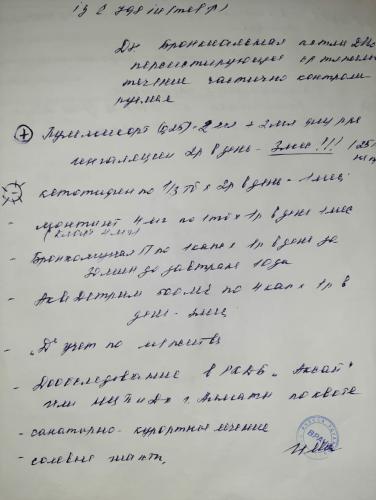 Ds: Бронхиальная астма,
персистирующее ср. тяжести
течение частично контроли
руемая
+ Пульмикорт (0,25) - 2 мл + 2 мл физ р-ра
ингаляции 2р в день - 3 мес!!!
- кетотифен по 1/3 тб х 2р в день - 1 мес
- монтият 4 мг по 1 тб х 1р в день 1 мес
- Бронхомунал П по 1 кап х 1р в день за
30 мин до завтрака 10 дн
- Аквадетрим 500МЕ по 4 кап х 1р в
день - 2 мес
- "Д" учет по м/жительства
- Дообследование в РКДБ "Аксай"
или НЦПиДх г. Алматы по квоте
- санаторно-курортное лечение
- солевые шахты.
ВРАЧ